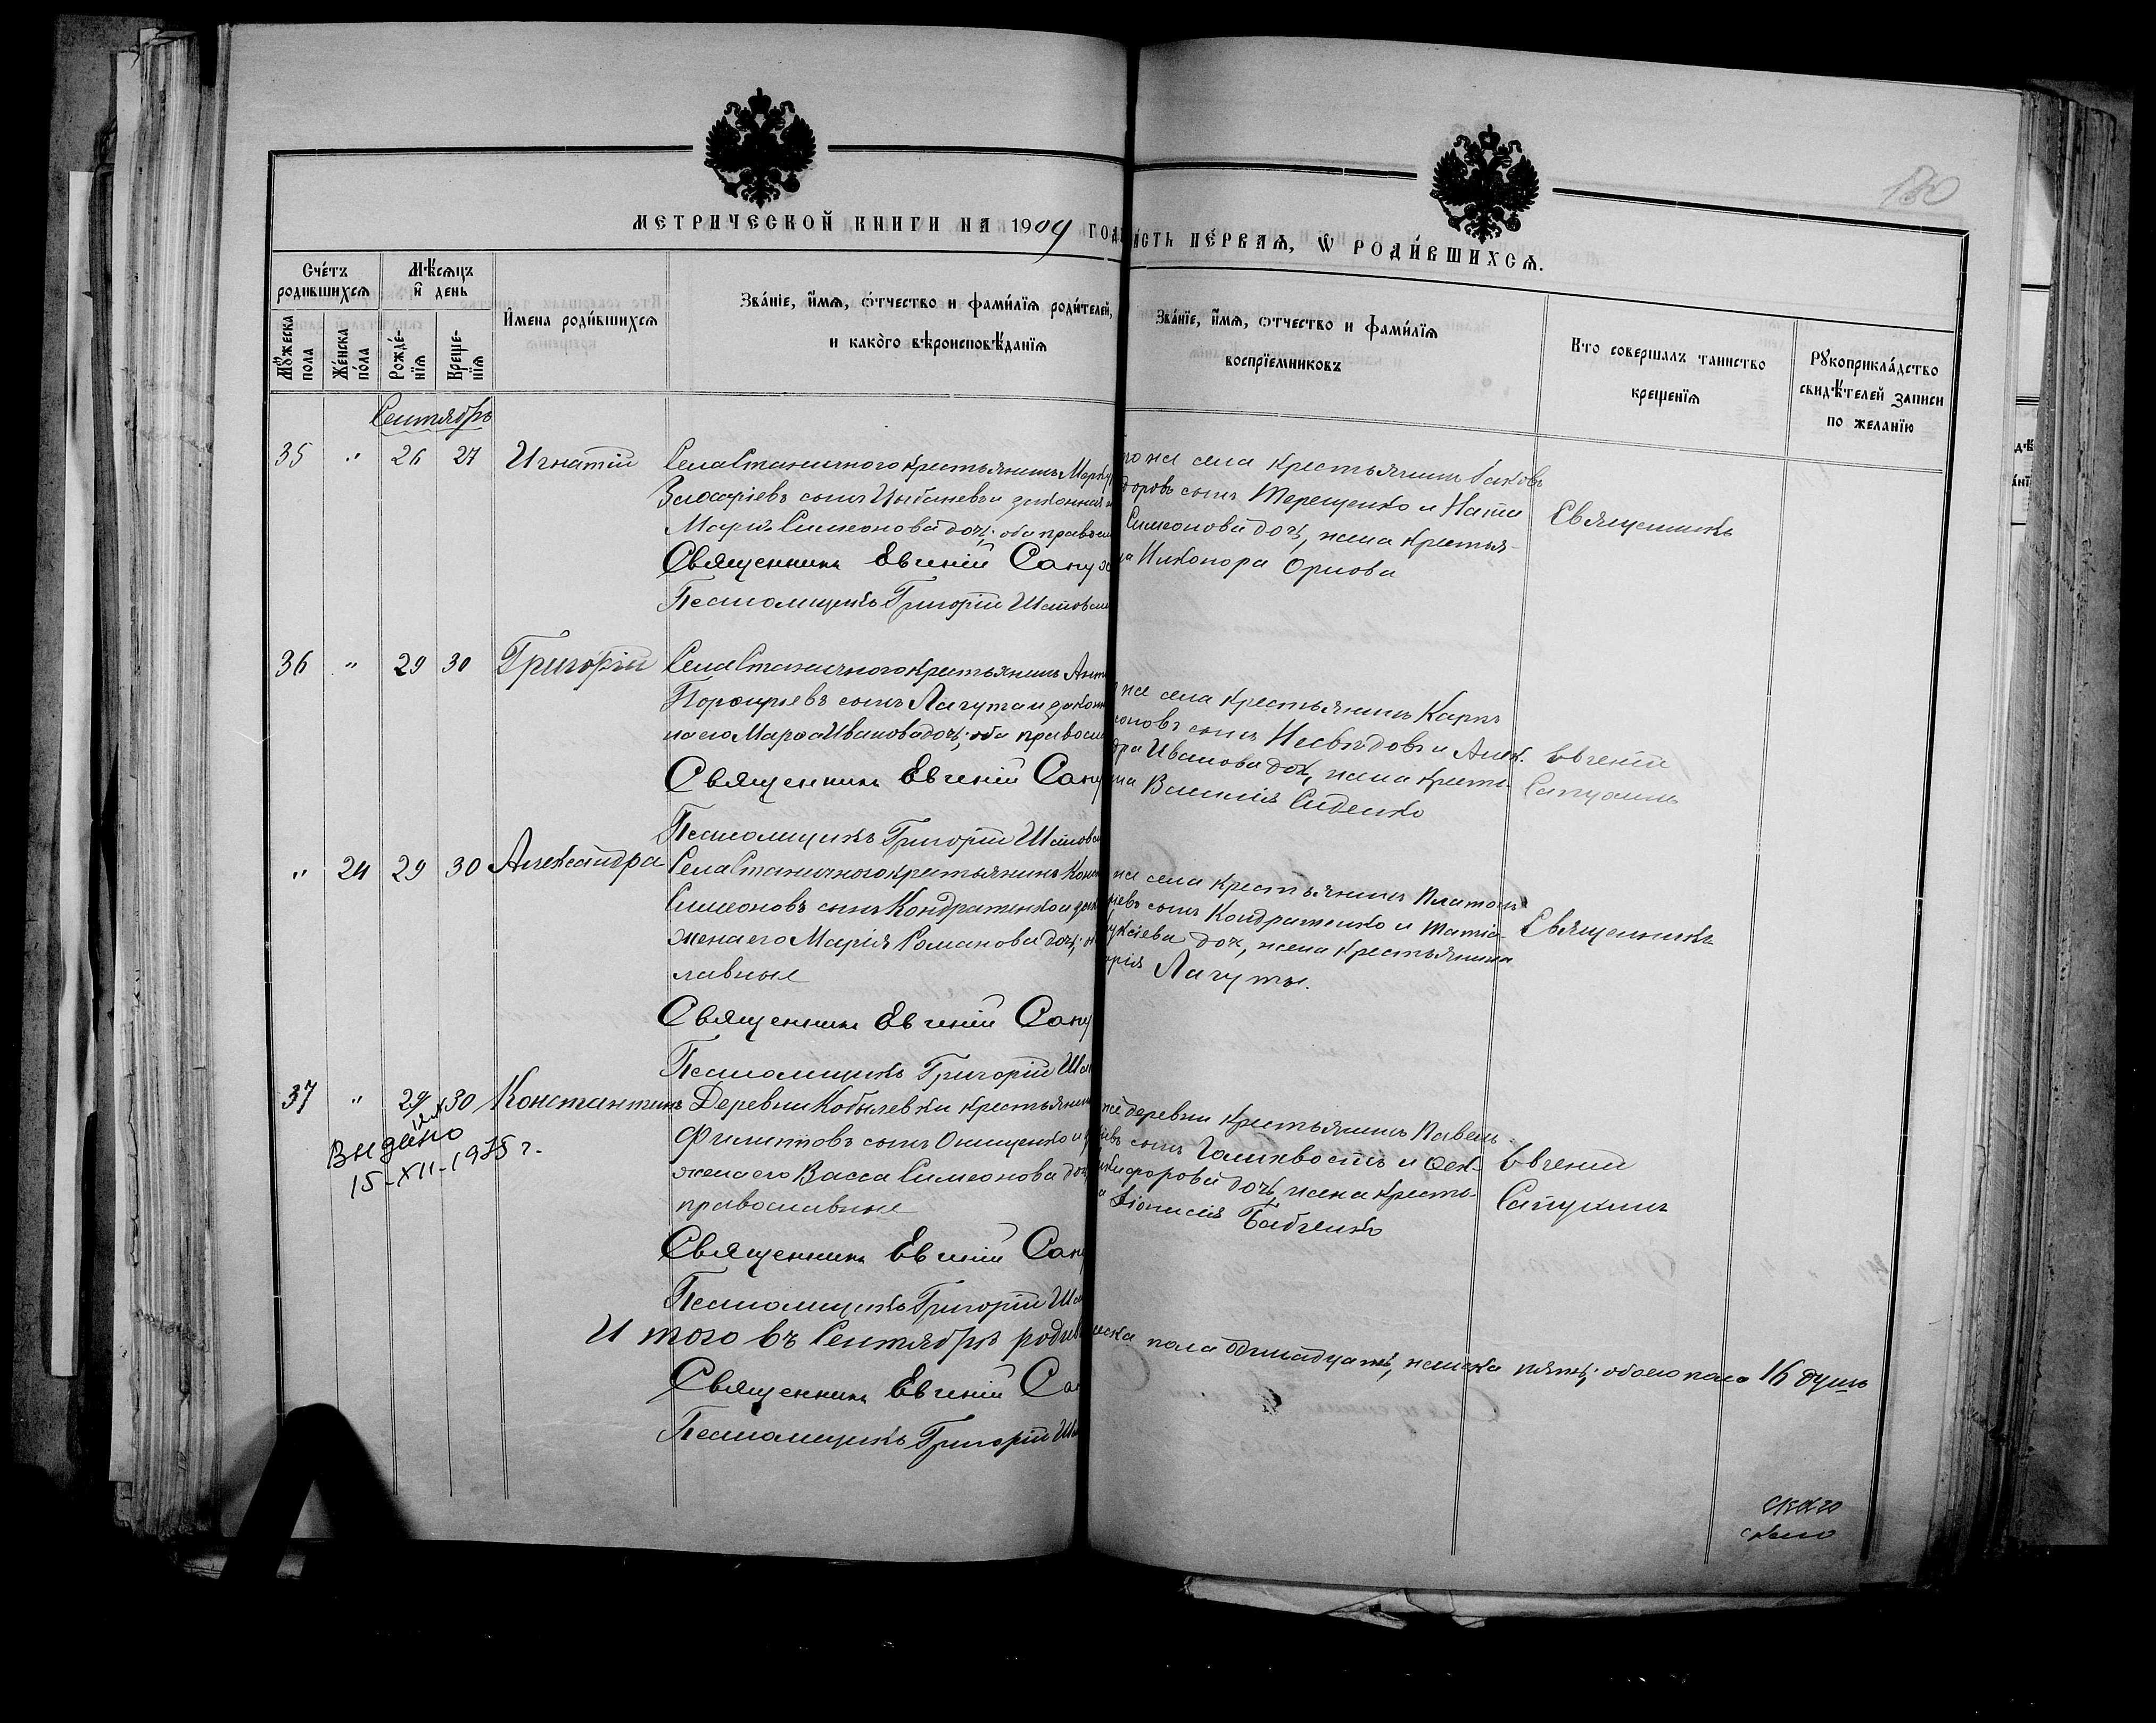 130
МЕТРИЧЕСКОЙ КНИГИ НА 1909 ГОД
ИСТЬ ПЕ́РВАѦ, Ѿ РОДИ́ВШИХСѦ.
Сче́тъ родившихсѧ
Мѣсѧцъ и҆ день
Мꙋжеска пола
Же́нска по́ла
Рожде́-нїѧ
Креще-нїѧ
И҆мена роди́вшихсѧ
Зва́нїе, и҆́мѧ, о҆́тчество и фами́лїѧ роди́телей,
и како́го вѣроисповѣ́данїѧ
Зва́нїе, и҆́мѧ, ѻтчество и фами́лїѧ
воспрїемниковъ
Кто совершалъ таинство
крещенїѧ
Рꙋкоприкла́дство
свидѣ́телей записи
по желанїю
Сентябрь
35 " 26 27 Игнатій
Села Станичного крестьянинъ Марк
сынъ Цыбаневъ и законная
Симеонова дочь; оба правосл
Священникъ Евгеній Сапух
Псаломщикъ Григорій
го же села крестьянинъ Іаковъ
доровъ сынъ Терещенко и Ната
Симеонова дочь, жена крестья-
на Никонора Орлова
Священникъ
36 " 29 30 Григорій
Села Станичного крестьянинъ Ант
Порфирьевъ сынъ Лагута и закон
на его Марѳа Иванова дочь; оба правосл
Священникъ Евгеній Сапу
Псаломщикъ Григорій
же села крестьянинъ Карпъ
сынъ и Алек.
дра Иванова доч, жена крестья
на Василія Сиденко
Евгеній
Сапухинъ
" 24 29 30 Александра
Села Станичного крестьянинъ Кон
Симеоновъ сынъ Кондратенко и зак
жена его Марія Романова дочь;
лавные
Священникъ Евгеній Сапу
Псаломщикъ Григорій
же села крестьянинъ Платонъ
іевъ сынъ Кондратенко и Татіа
уксіева доч, жена крестьянина
орія Лагуты.
Священникъ
37 " 29 30 Константинъ
Выдано
15-XII-1935 г.
Деревни Кобылевки крестьянин
Филиповъ сынъ Онищенко и
жена его Васса Симеонова доч
православные
Священникъ Евгеній Сап
Псаломщикъ Григорій
же деревни крестьянинъ Павелъ
сынъ и Ѳек-
икифорова дочь, жена кресть-
на Діонисія Бабченко
Евгеній
Сапухинъ
Итого въ Сентябрѣ родив
ска пола одинадцать, женска пять; обоего пола 16 душъ
Священникъ Евгеній Са
Псаломщикъ Григорій